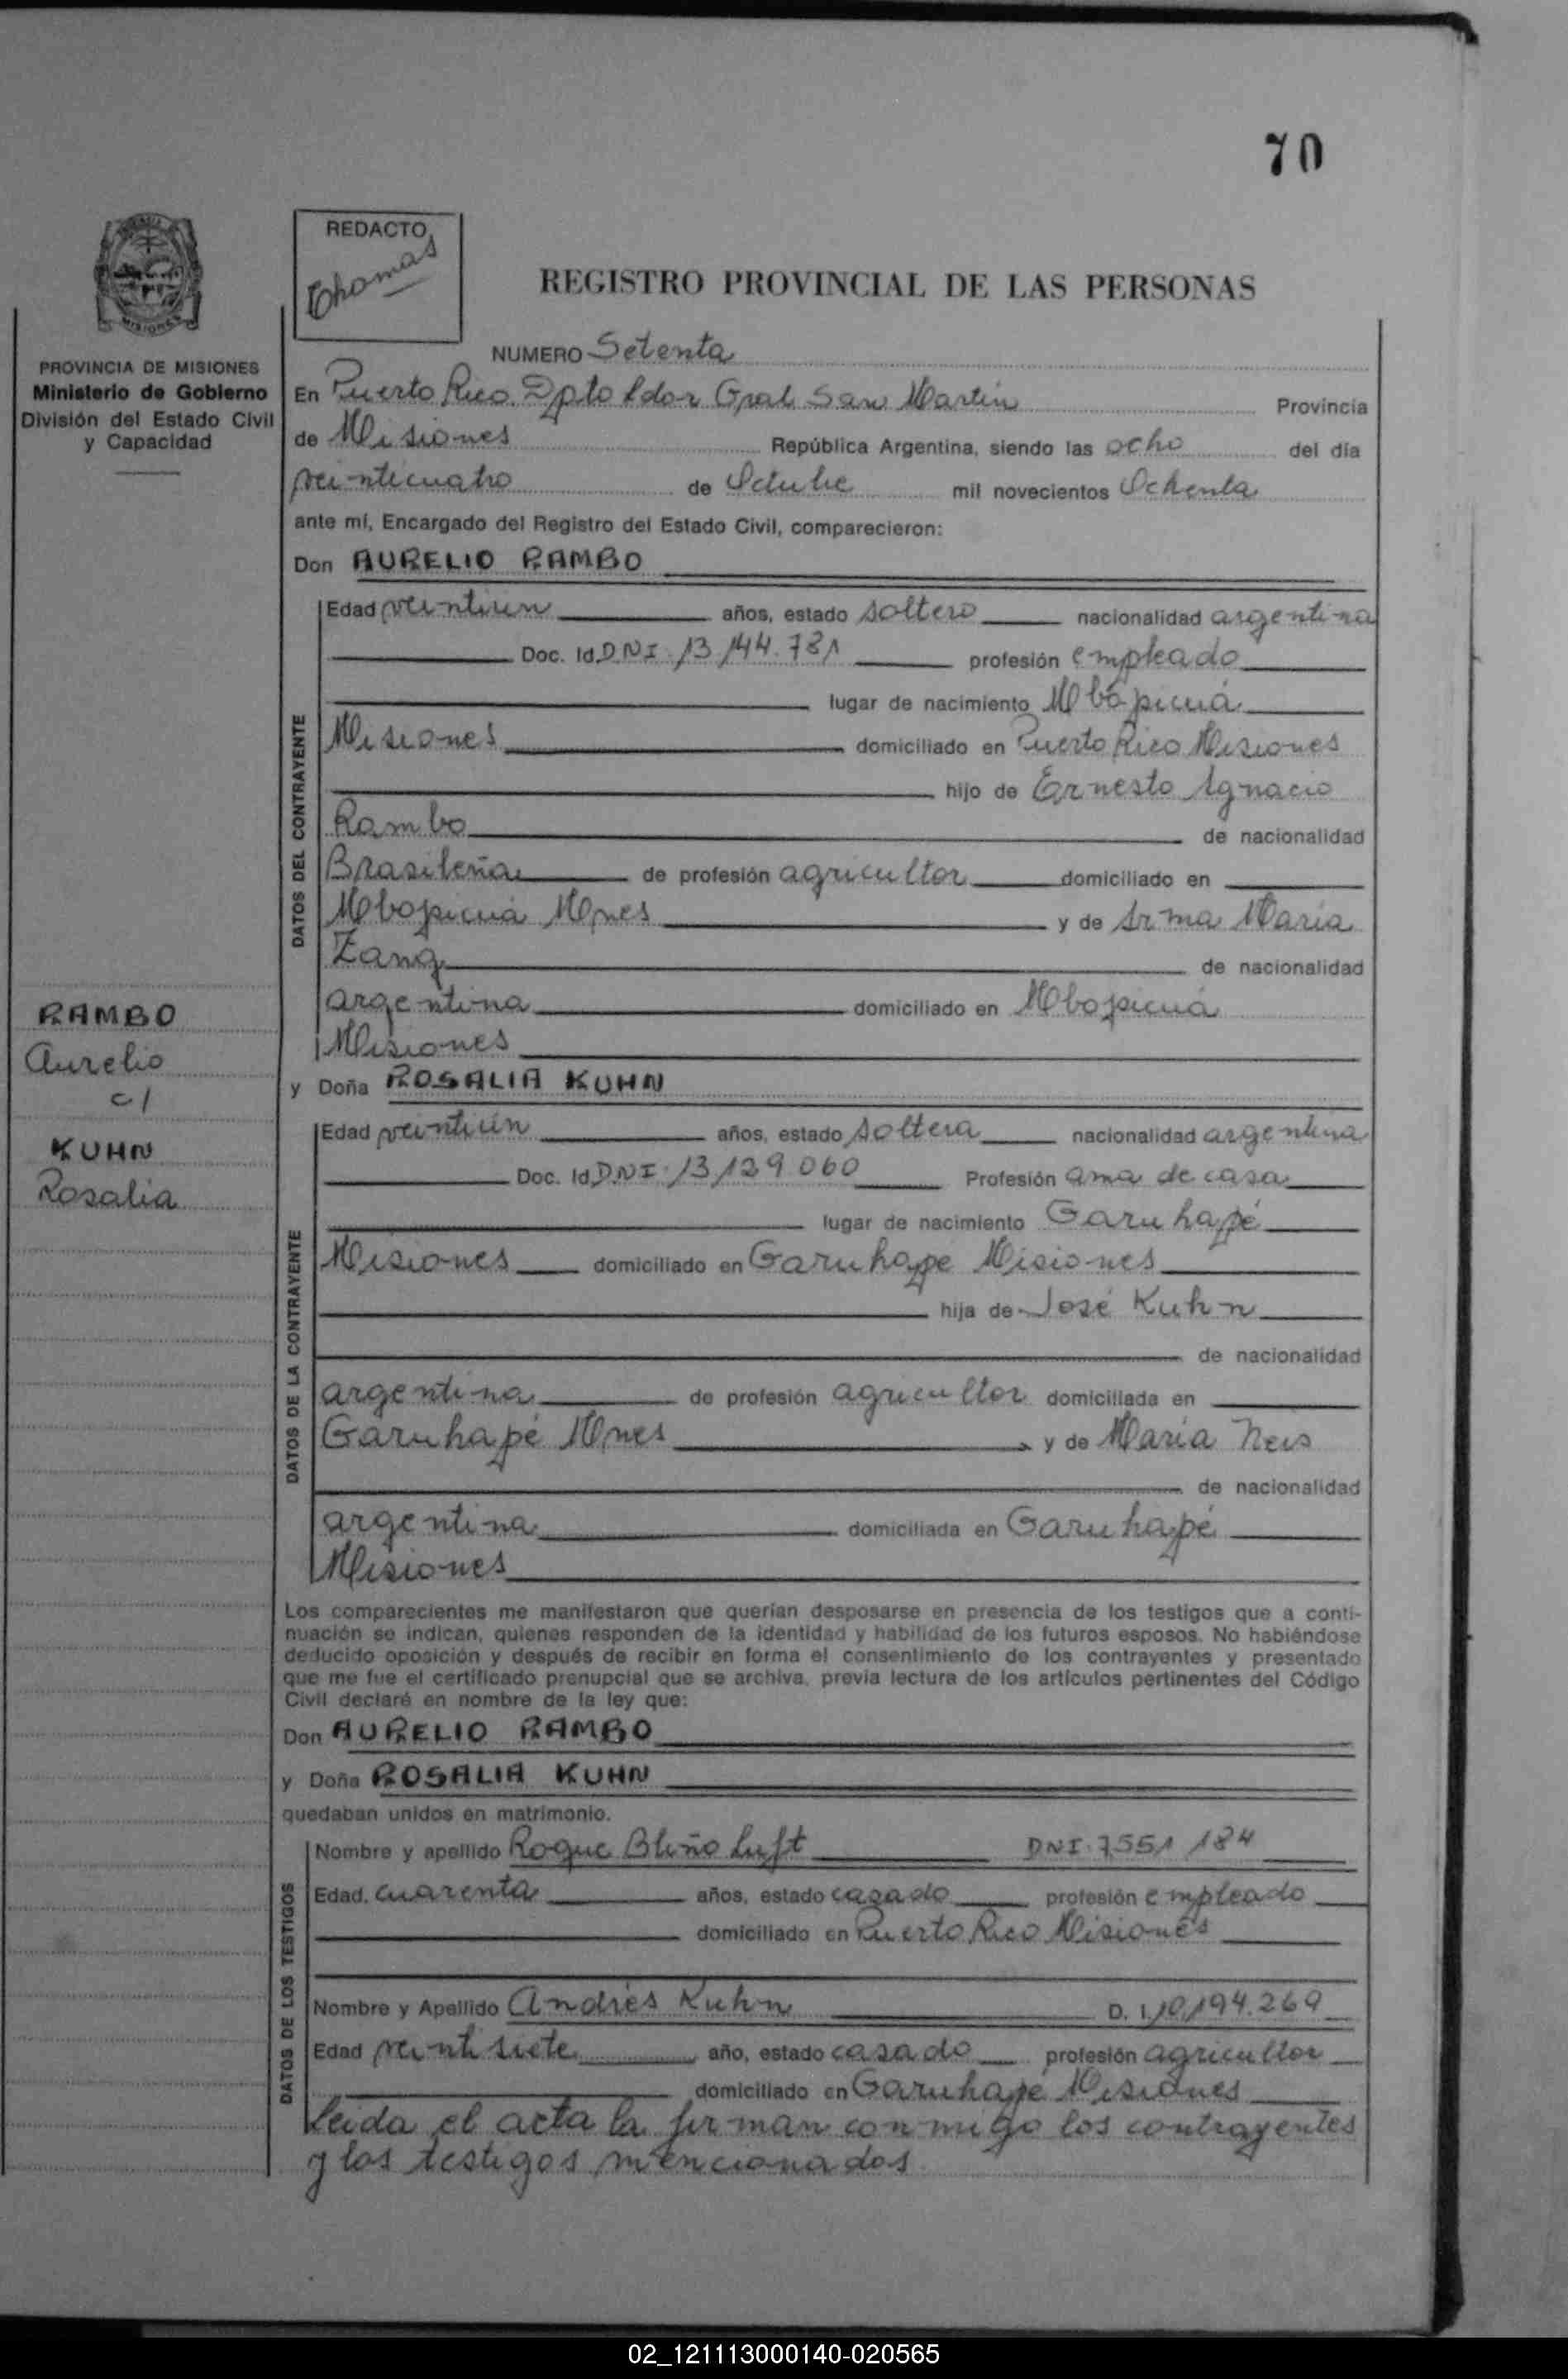 70
REDACTO
Thomas
REGISTRO PROVINCIAL DE LAS PERSONAS
MISIONES
PROVINCIA DE MISIONES
Ministerio de Gobierno
División del Estado Civil
y Capacidad
NUMERO Setenta
En Puerto Rico Dpto Ldor Gral San Martín Provincia
de Misiones República Argentina, siendo las ocho del día
veinticuatro de Octubre mil novecientos Ochenta
ante mí, Encargado del Registro del Estado Civil, comparecieron:
Don AURELIO RAMBO
DATOS DEL CONTRAYENTE
Edad veintiun años, estado soltero nacionalidad argentina
Doc. Id DNI. 13.144.781 profesión empleado
lugar de nacimiento Mbopicuá
Misiones domiciliado en Puerto Rico Misiones
hijo de Ernesto Ignacio
Rambo de nacionalidad
Brasileña de profesión agricultor domiciliado en
Mbopicuá Mnes y de Irma María
Zang de nacionalidad
argentina domiciliado en Mbopicuá
Misiones
RAMBO
Aurelio
c/
KUHN
Rosalia
y Doña ROSALIA KUHN
DATOS DE LA CONTRAYENTE
Edad veintiún años, estado soltera nacionalidad argentina
Doc. Id D.N.I. 13.139.060 Profesión ama de casa
lugar de nacimiento Garuhapé
Misiones domiciliado en Garuhapé Misiones
hija de José Kuhn
de nacionalidad
argentina de profesión agricultor domiciliada en
Garuhapé Mnes y de María Neis
de nacionalidad
argentina domiciliada en Garuhapé
Misiones
Los comparecientes me manifestaron que querían desposarse en presencia de los testigos que a conti-
nuación se indican, quienes responden de la identidad y habilidad de los futuros esposos. No habiéndose
deducido oposición y después de recibir en forma el consentimiento de los contrayentes y presentado
que me fue el certificado prenupcial que se archiva, previa lectura de los artículos pertinentes del Código
Civil declaré en nombre de la ley que:
Don AURELIO RAMBO
y Doña ROSALIA KUHN
quedaban unidos en matrimonio.
DATOS DE LOS TESTIGOS
Nombre y apellido Roque Luft DNI. 7.551.184
Edad. cuarenta años, estado casado profesión empleado
domiciliado en Puerto Rico Misiones
Nombre y Apellido Andrés Kuhn D. I. 10.194.269
Edad veintisiete año, estado casado profesión agricultor
domiciliado en Garuhapé Misiones
Leida el acta la firman conmigo los contrayentes
y los testigos mencionados
02_121113000140-020565